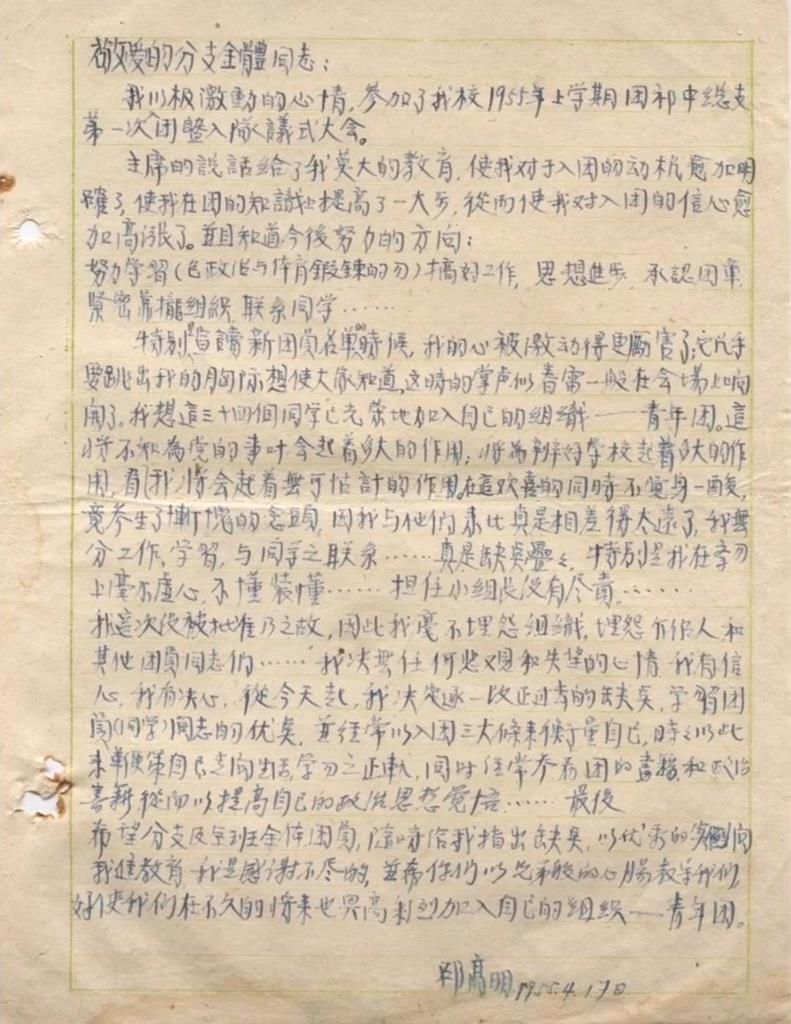 敬愛的分支全體同志：
我以极激動的心情，参加了我校1955年上学期团初中總支
第一次团暨入隊議式大会。
主席的說話給了我莫大的教育，使我对于入团的动机愈加明
確了，使我在团的知識上提高了一大步，從而使我对入团的信心愈
加高漲了。並且知道今後努力的方向：
努力学習(包政治与体育鍛鍊的习)搞好工作，思想進步，承認团章
緊密靠攏組織，联系同学……
特别宣讀新团員名單時候，我的心被激动得更厲害了，它几乎
要跳出我的胸际，想使大家知道，这時的掌声似春雷一般在会場上响
開了。我想這三十四個同学已光荣地加入自己的組織——青年团。這
将不知為党的事叶会起着多大的作用；将為辦好学校起着多大的作
用，看我将会起着無可估計的作用。在這欢喜的同時不覚身一酸，
竟参生了慚愧的念頭，因我与他們来比真是相差得太遠了，我無
分工作，学習，与同学之联系……真是缺奌疊疊，特别是我在学习
上毫不虚心，不懂裝懂……担任小組長没有尽責……
我這次没被批准乃之故，因此我毫不埋怨組織，埋怨介绍人和
其他团員同志们……我决無任何悲观和失望的心情，我有信
心，我有决心，從今天起，我决定逐一改正过去的缺奌，学習团
員(同学)同志的优奌，並经常以入团三大條来衡量自己，時々以此
来鞭策自己走向生活学习之正軌，同时经常参看团的書籍和政治
書籍從而以提高自己的政治思想覚悟……最後
希望分支及全班全体团員，隨時给我指出缺奌，以优秀的向
我進教育，我是感谢不尽的，並希你们以兄弟般的心腸教导我们，
好使我们在不久的将来也興高彩烈加入自己的組織——青年团。
邓高明 1955.4.17日